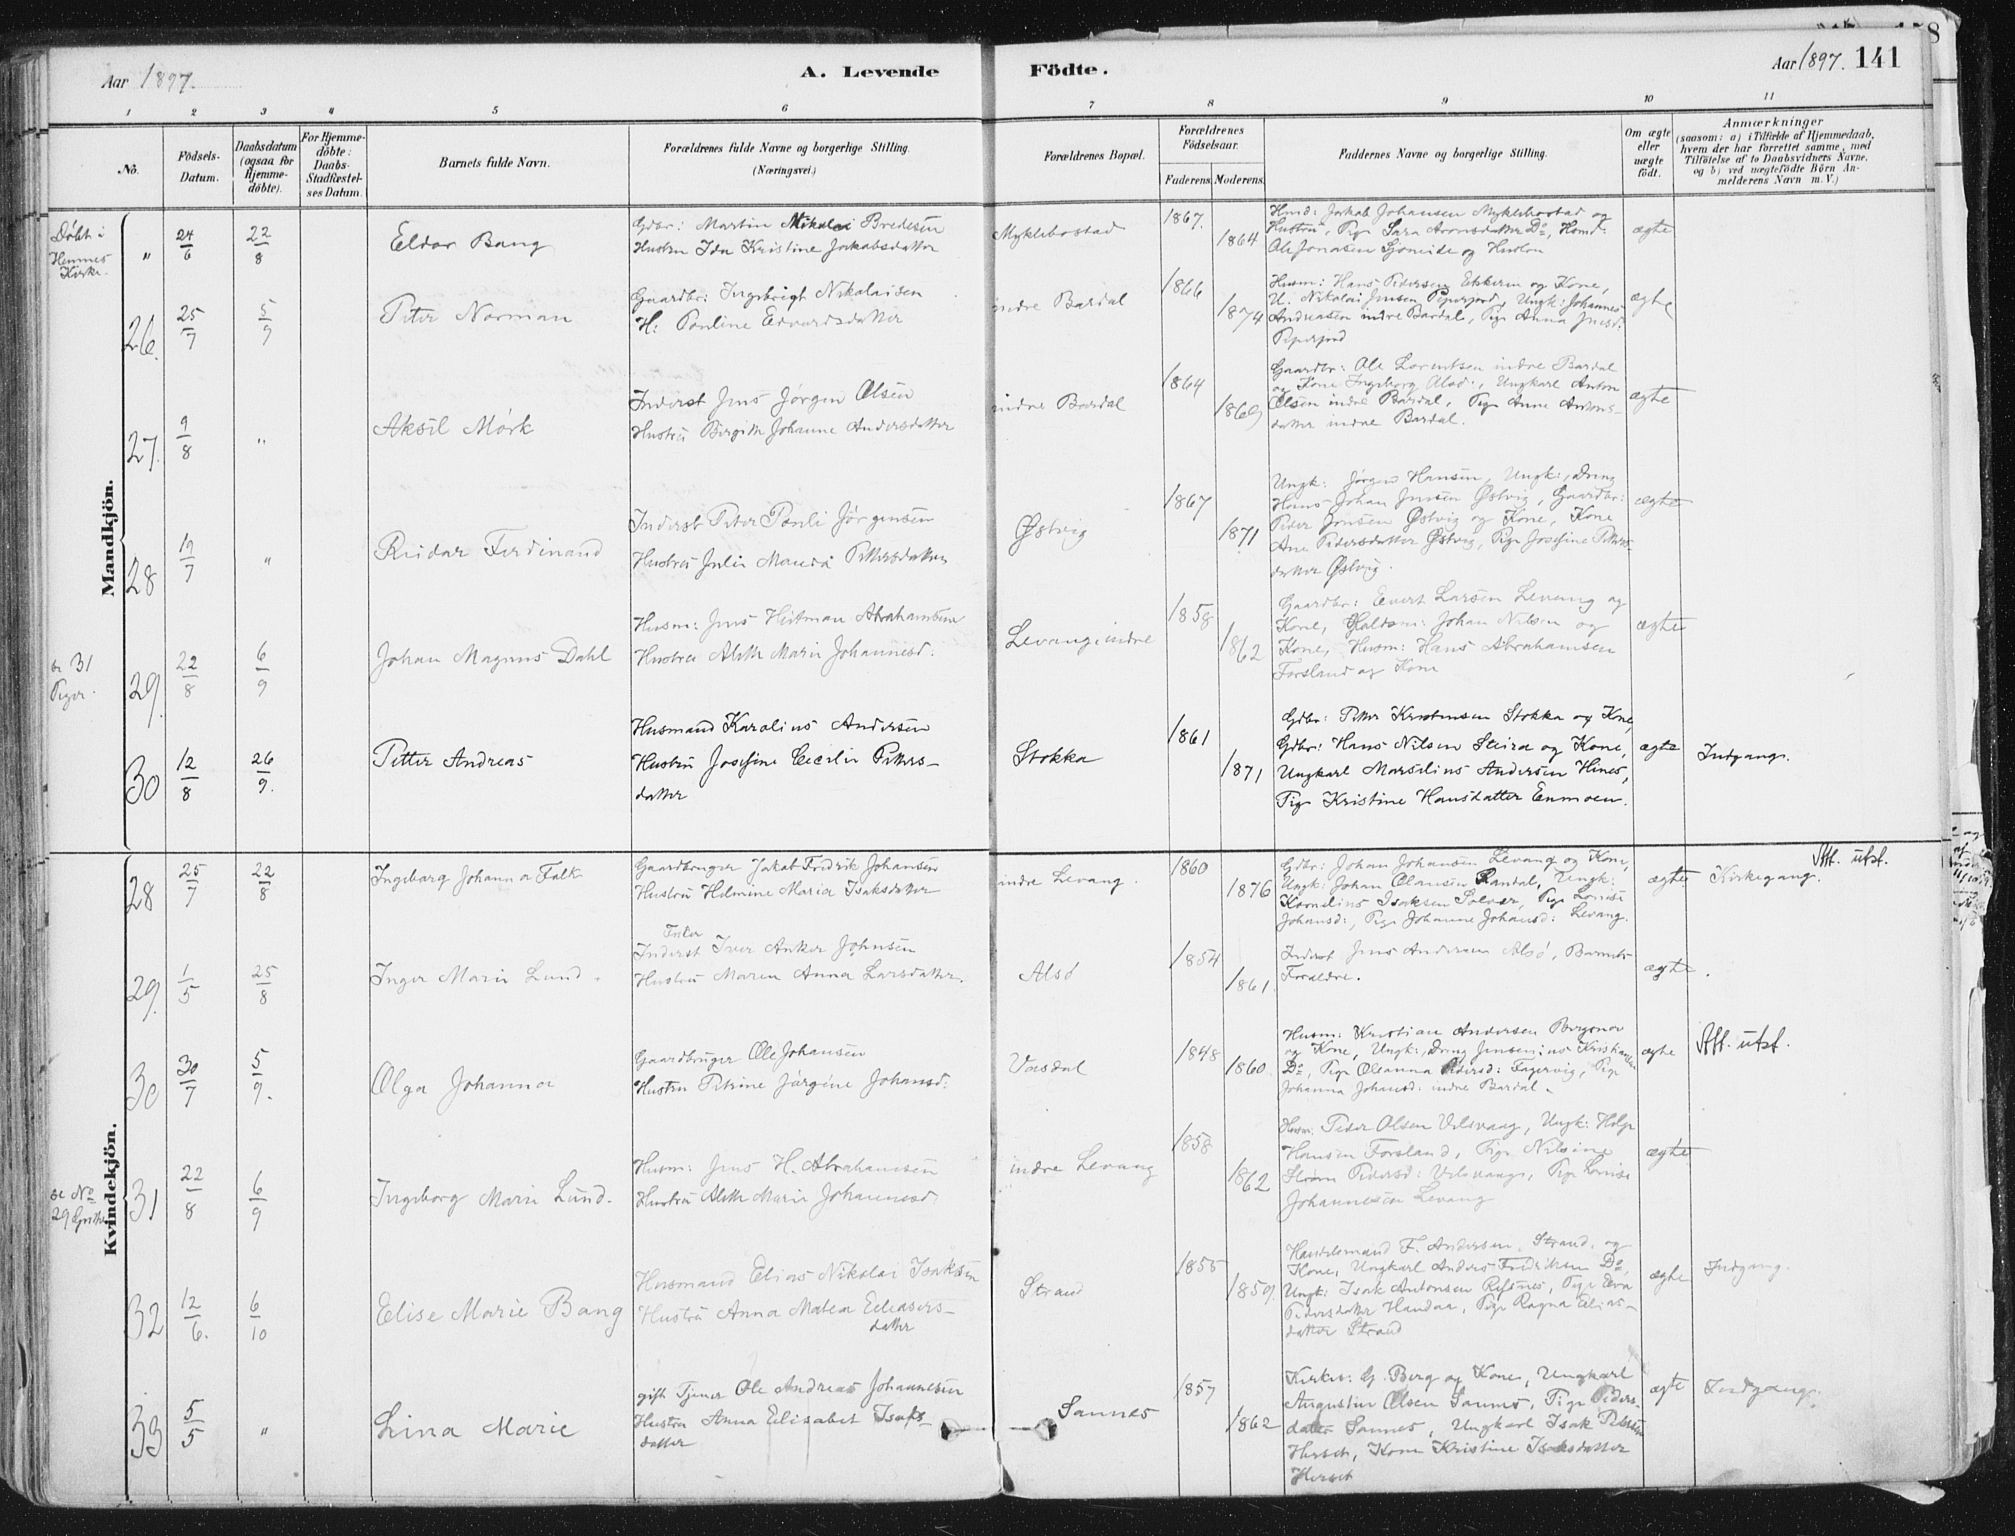 Aar 1897.
A. Levende Födte.
Aar 1897. 141
1 2 3 4 5 6 7 8 9 10 11
No.
Födsels-
Datum.
Daabsdatum
(ogsaa for
Hjemme-
döbte).
For Hjemme-
döbte:
Daabs-
Stadfæstel-
ses Datum.
Barnets fulde Navn.
Forældrenes fulde Navne og borgerlige Stilling
(Næringsvei.)
Forældrenes Bopæl.
Forældrenes
Födselsaar.
Faderens. Moderens.
Faddernes Navne og borgerlige Stilling.
Om ægte
eller
uægte
födt.
Anmærkninger
(saasom: a) i Tilfælde af Hjemmedaab,
hvem der har forrettet samme, med
Tilföielse af to Daabsvidners Navne.
og b) ved uægtefödte Börn An-
melderens Navn m. V.)
Mandkjön.
Døbt i
Hemnes
Kirke.
" 24/6 22/8 Eldor Bang
Gdbr: Martin Nikolai Bredesen
Hustru Ida Kristine Jakobsdatter
Myklebostad 1867. 1864
Hmd: Jakob Johansen Myklebostad og
Hustru, Pige Sara Aronsdatter Do, Hmd:
Ole Jonasen Sjoneide og Hustru
ægte
26. 25/7 5/9 Peter Norman
Gaardbr: Ingebrigt Nikolaisen
H: Pauline Edvardsdatter
indre Bardal 1866 1874
Husm: Hans Pedersen og Kone,
U. Nikolai Jensen, Ungk: Johannes
Andreasen indre Bardal, Pige Anna
ægte
27. 9/8 " Aksel Mørk
Inderst Jens Jørgen Olsen
Hustru Birgitte Johanne Andersdatter
indre Bardal 1864 1869
Gaardbr: Ole Lorentsen indre Bardal
og Kone Ingeborg Olsd:, Ungkarl Anton
Olsen indre Bardal, Pige Anne Antons-
datter indre Bardal.
ægte
28 19/7 " Reidar Ferdinand
Inderst Peter Pauli Jørgensen
Hustru Julie Petersdatter
Østvig 1867 1871
Ungk: Jørgen Hansen, Ungk:, Dreng
Hans Johan Jensen Østvig, Gaardbr:
Peder Jensen Østvig og Kone, Kone
Ane Pedersdatter Østvig, Pige Josefine Peters-
datter Østvig.
ægte
se 31
Piger.
29. 22/8 6/9 Johan Magnus Dahl
Husm: Jens Heitman Abrahamsen
Hustru Aleth Marie Johannesd:
Levang indre 1858 1862
Gaardbr: Evert Larsen Levang og
Kone, Johan Nilsen og
Kone, Husm: Hans Abrahamsen
Forsland og Kone
ægte
30 12/8 26/9. Petter Andreas
Husmand Karolius Andersen
Hustru Josefine Cecilie Peters-
datter
Stokka 1861 1871
Gdbr: Peter Kristensen Stokka og Kone,
Gdbr: Hans Nilsen Steiro og Kone,
Ungkarl Marselius Andersen Hines,
Pige Kristine Hansdatter Enmoen.
ægte Indgang.
Kvindekjön.
28 25/7 22/8 Ingeborg Johanna Falk
Gaardbruger Jakob Fredrik Johansen
Hustru Helmine Maria Isaksdatter
indre Levang. 1860 1876
Gdbr: Johan Johansen Levang og Kone,
Ungk: Johan Olausen Randal, Ungk:
Kornelius Isaksen Solvær, Pige Lovise
Johansd:, Pige Johanne Johansd: Levang.
ægte Kirkegang. Att. utst.
29. 1/5 25/8 Inger Marie Lund
Inderst Iver Anker Johnsen
Hustru Maren Anna Larsdatter.
Alsø 1854 1861.
Inderst Jens Andersen Alsø, Barnets
Foreldre.
ægte.
30 30/7 5/9. Olga Johanna
Gaardbruger Ole Johansen
Hustru Petrine Jørgine Johansd:
Vasdal 1848 1860.
Husm: Kristian Andersen
og Kone, Ungk:, Dreng Kristiansen
Do, Pige Olsanna Pedersd: Fagervig, Pige
Johanna Johansd: indre Bardal.
ægte Att. utst.
se No
29 Gutter
31 22/8 6/9 Ingeborg Marie Lund.
Husm: Jens H. Abrahamsen
Hustru Aleth Marie Johannesd:
indre Levang 1858 1862
Husm: Peder Olsen Velsvaag, Ungk: Helge
Hansen Forsland, Pige Nilsine
Pedersd: Velsvaag, Pige Lovise
Johannesen Levang
ægte
32 12/6. 6/10 Elise Marie Bang
Husmand Elias Nikolai Isaksen
Hustru Anna Matea Eliasers-
datter
Strand 1855 1859.
Handelsmand F. Andersen, Strand, og
Kone, Ungkarl Anders Fredriksen Do,
Ungk: Isak Antonsen Refsnes, Pige Eva
Pedersdatter Handaa, Pige Ragna Elias-
datter Strand
ægte Indgang.
33 5/5 " Lina Marie
gift Tjener Ole Andreas Johannesen
Hustru Anna Elisabet Isaks-
datter
Sannes 1857 1862
Kirkes: G. Berg og Kone, Ungkarl
Augustin Olsen Sannes, Pige Peders-
datter Sannes, Ungkarl Isak Petersen
Herset, Kone Kristine Isaksdatter
Herset
ægte Indgang.